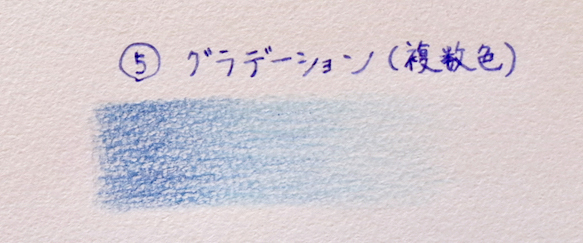 ⑤ グラデーション(複数色)